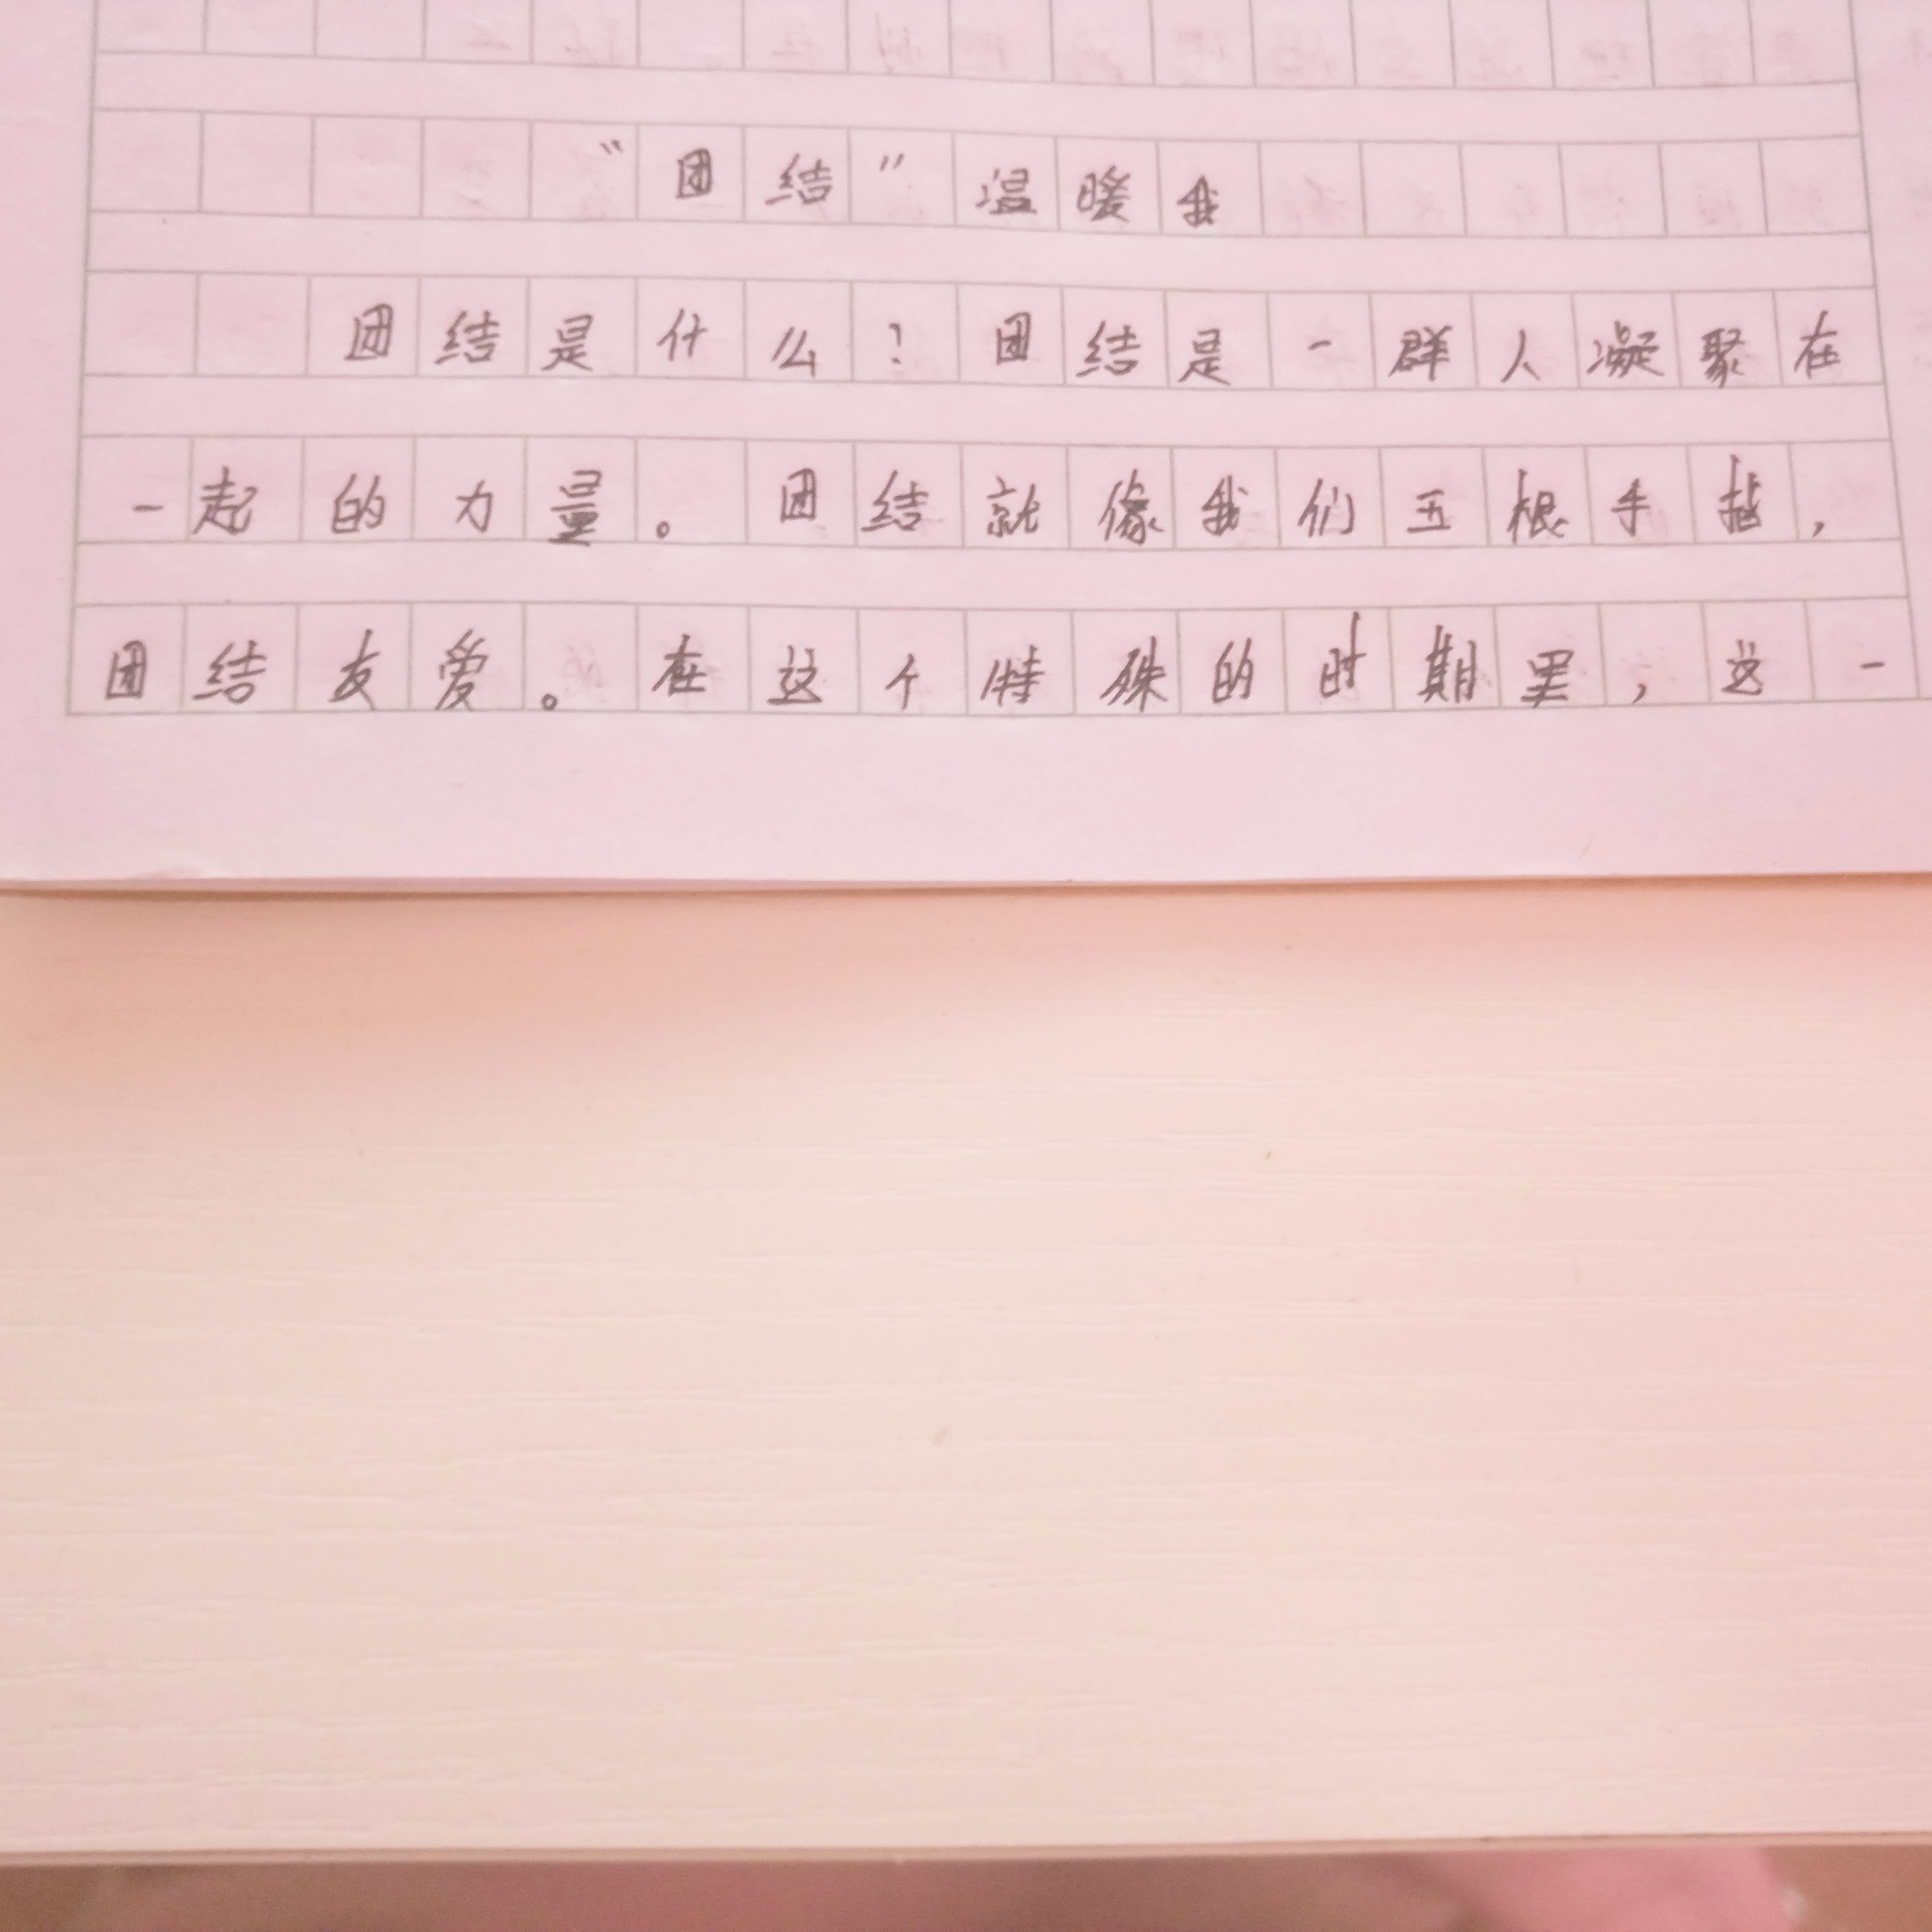 “团结”温暖我
团结是什么？团结是一群人凝聚在
一起的力量。团结就像我们五根手指，
团结友爱。在这个特殊的时期里，这一